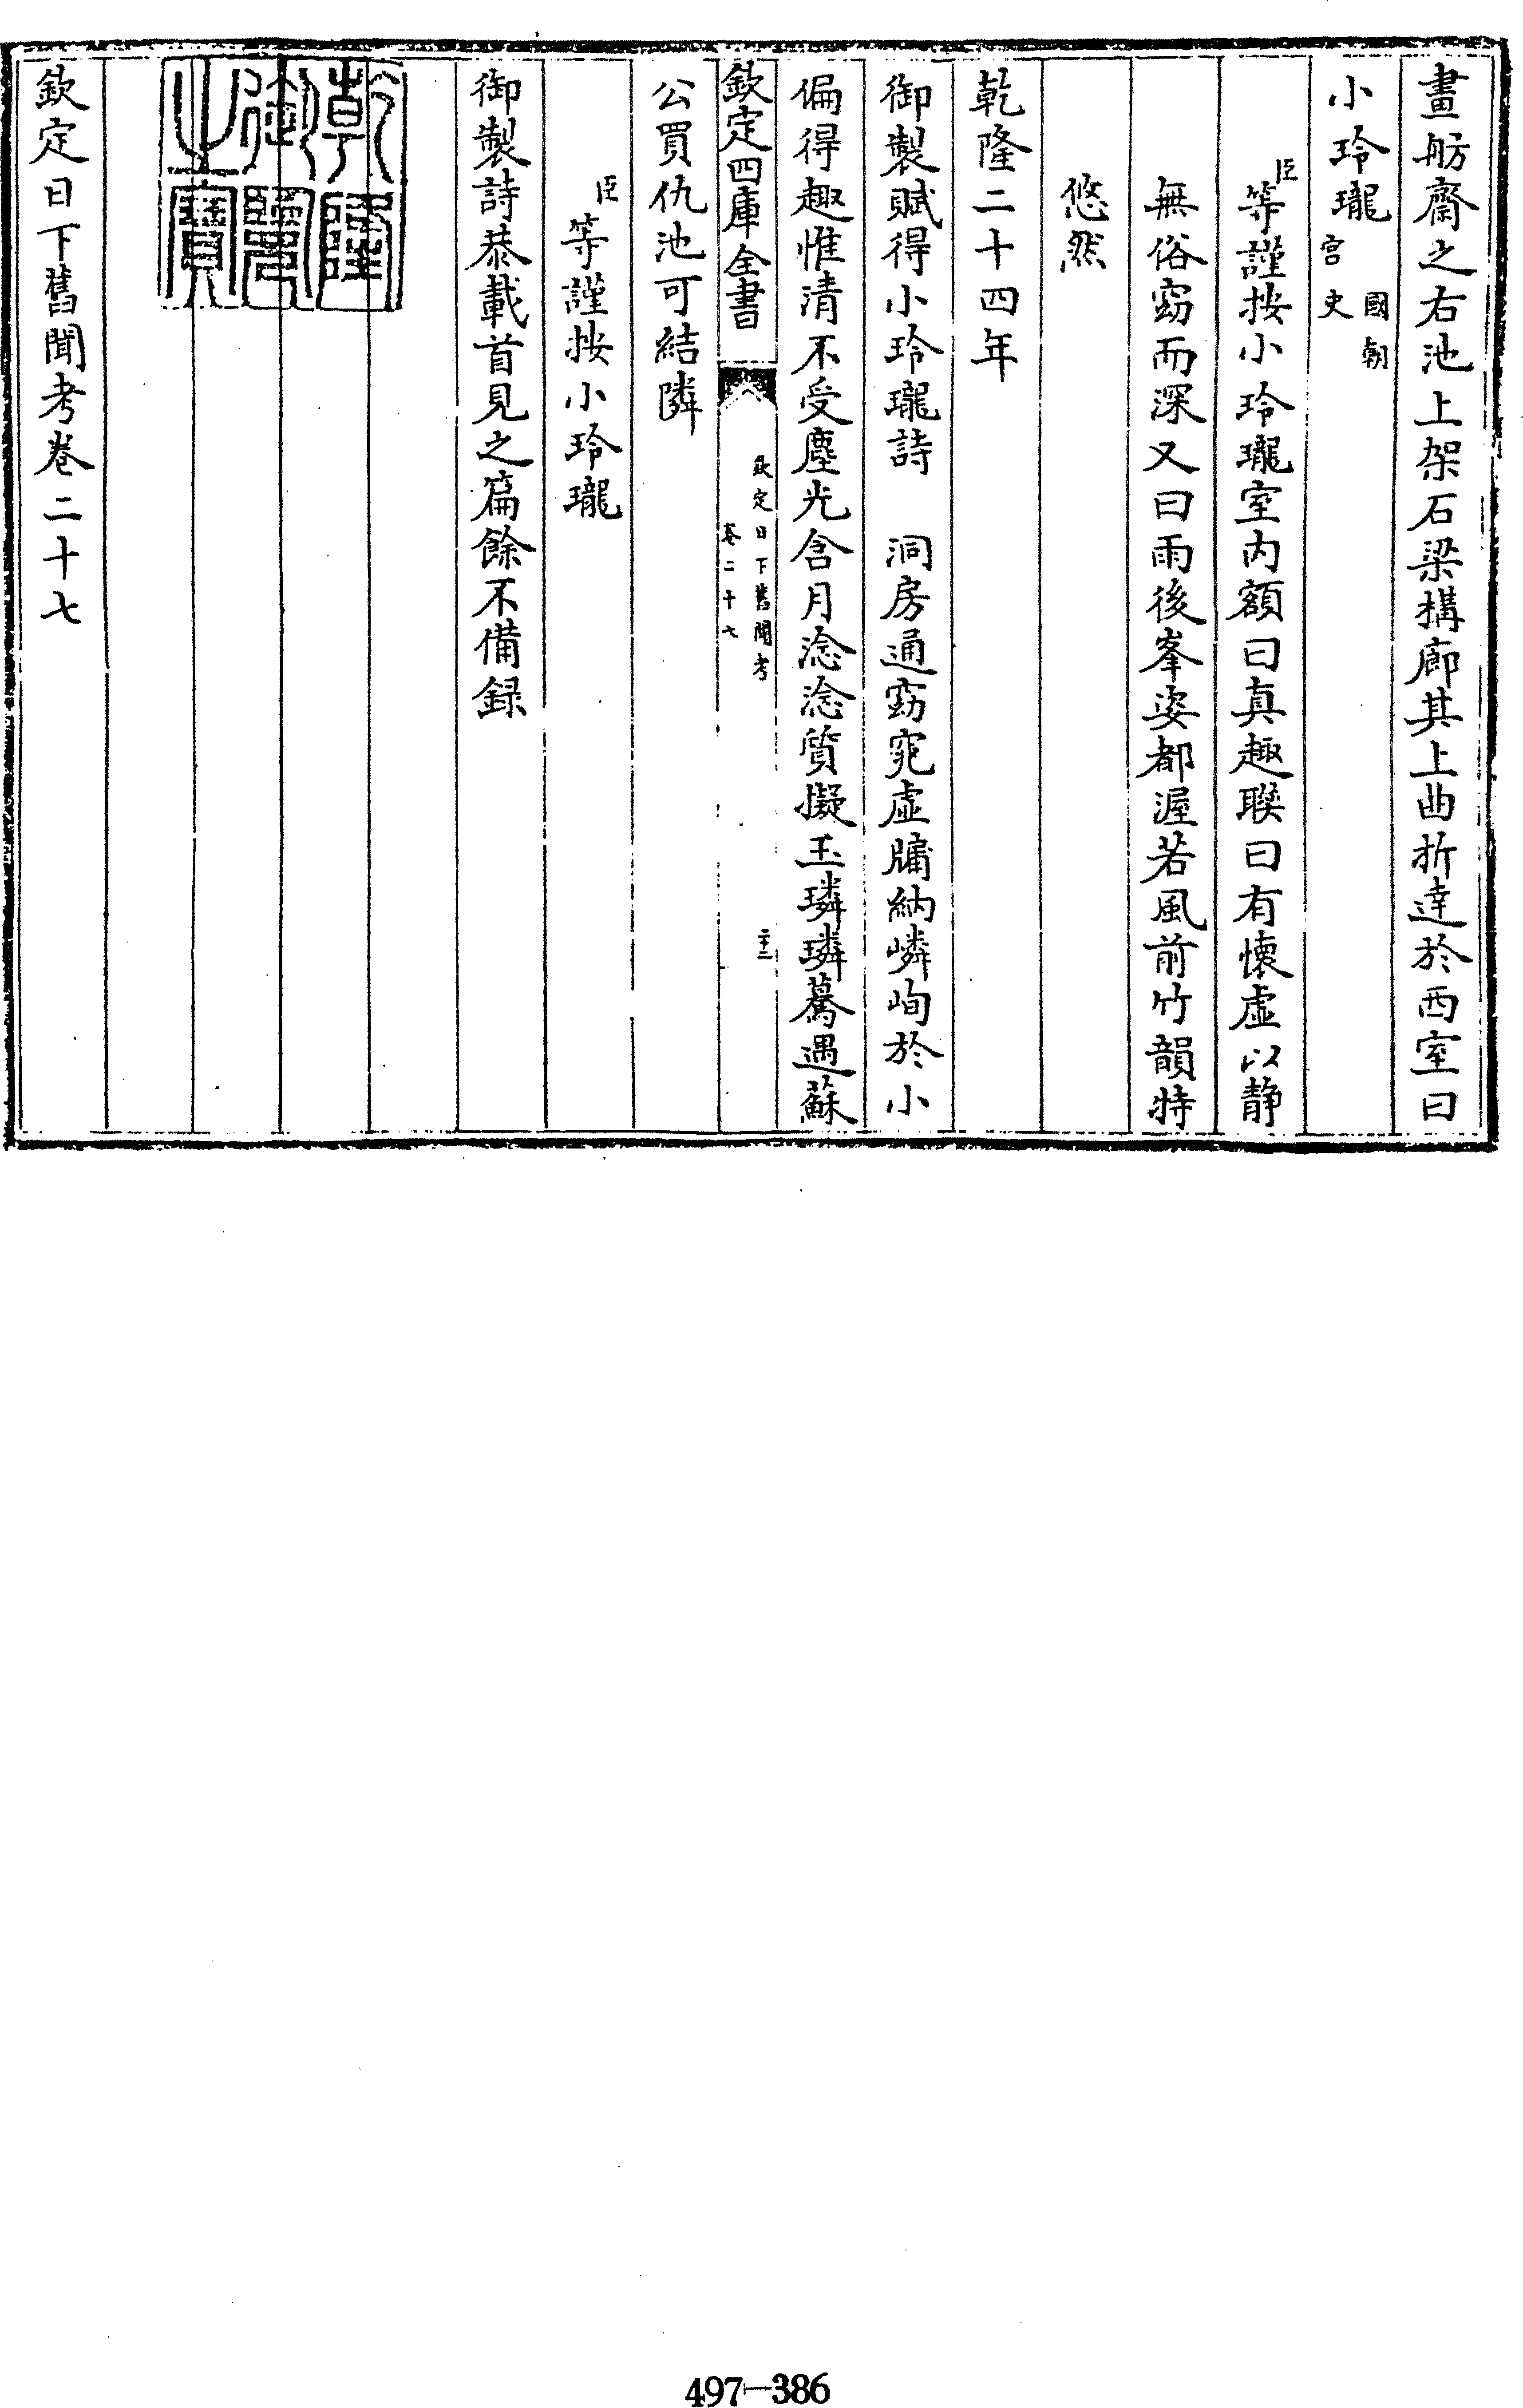 畫舫齋之右池上架石梁構廊其上曲折達於西室曰
小玲瓏國朝宮史
臣等謹按小玲瓏室内額曰真趣聯曰有懷虛以靜
無俗窈而深又曰雨後峯姿都渥若風前竹韻特
悠然
乾隆二十四年
御製賦得小玲瓏詩 洞房通窈窕虛牖納嶙峋於小
偏得趣惟清不受塵光含月淰淰質擬玉璘璘驀遇蘇
欽定四庫全書 欽定日下舊聞考 卷二十七 二十三
公買仇池可結隣
臣等謹按小玲瓏
御製詩恭載首見之篇餘不備録
乾隆御覽之寶
欽定日下舊聞考卷二十七
497-386